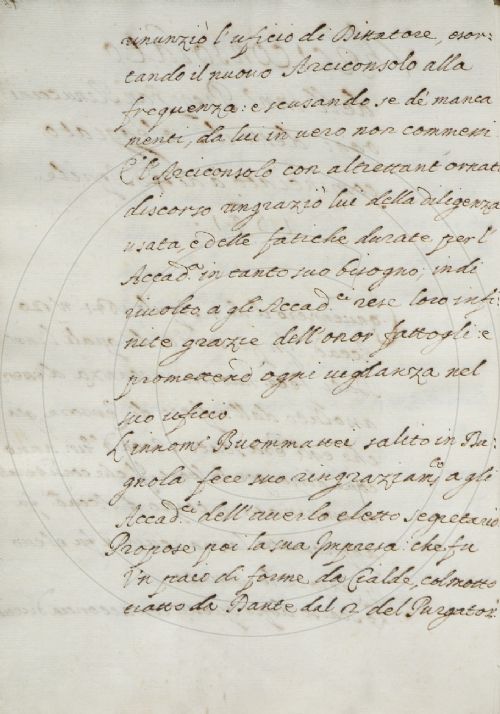 rinunziò l'uficio di Dittatore, esor-
tando il nuovo Arciconsolo alla
frequenza: e scusando se de manca
menti, da lui in vero non commessi
E l'Arciconsolo con altrettant' ornato
discorso ringraziò lui della diligenza
usata, e delle fatiche durate per l'
Accad.ª in tanto suo bisogno; indi
rivolto a gli Accad.ci rese loro infi
nite grazie dell'onor fattogli: e
promettend' ogni vigilanza nel
suo uficio
L'Innom.º Buommattei salito in Bu:
gnola fece suo ringraziam.to a gli
Accad.ci dell'averlo eletto segretario
Propose poi la sua Impresa che fu
Un paio di forme da Cialde, col motto
tratto da Dante dal 2 del Purgator.